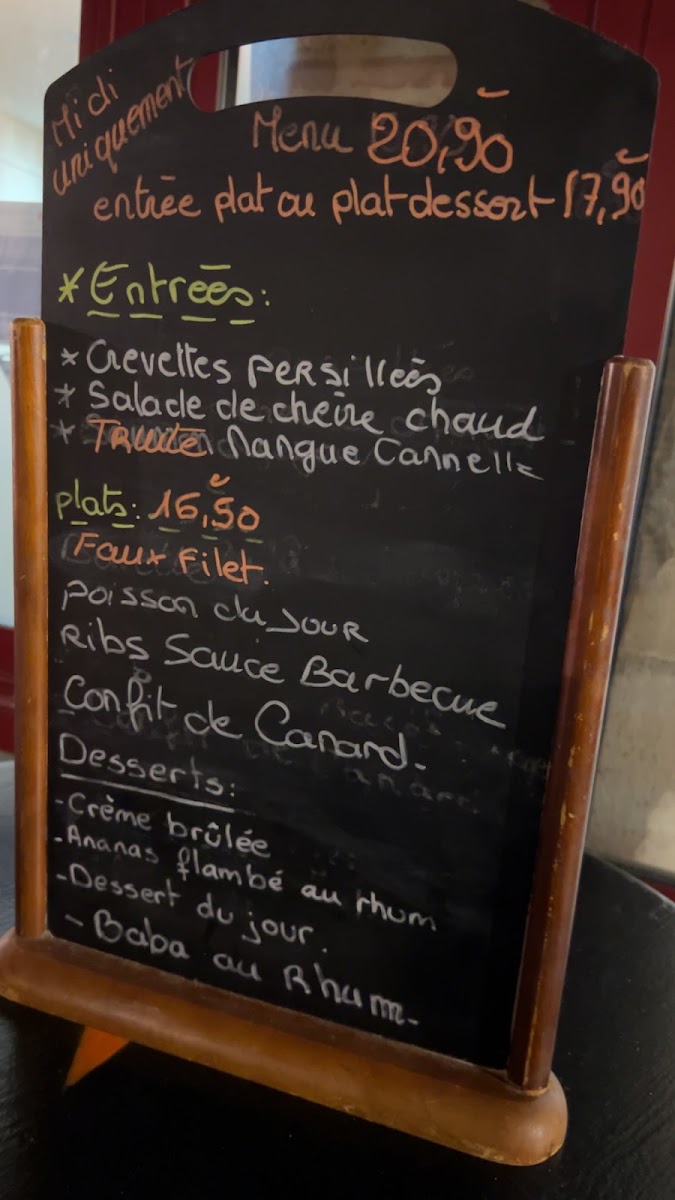 Midi
uniquement
Menu 20,90
entrée plat ou plat dessert 17,90
* Entrées:
* Crevettes persillées
* Salade de chèvre chaud
* Truite Mangue Cannelle
plats: 16,50
Faux Filet.
poisson du jour
Ribs Sauce Barbecue
Confit de Canard.
Desserts:
- Crème brûlée
- Ananas flambé au rhum
- Dessert du jour.
- Baba au Rhum.